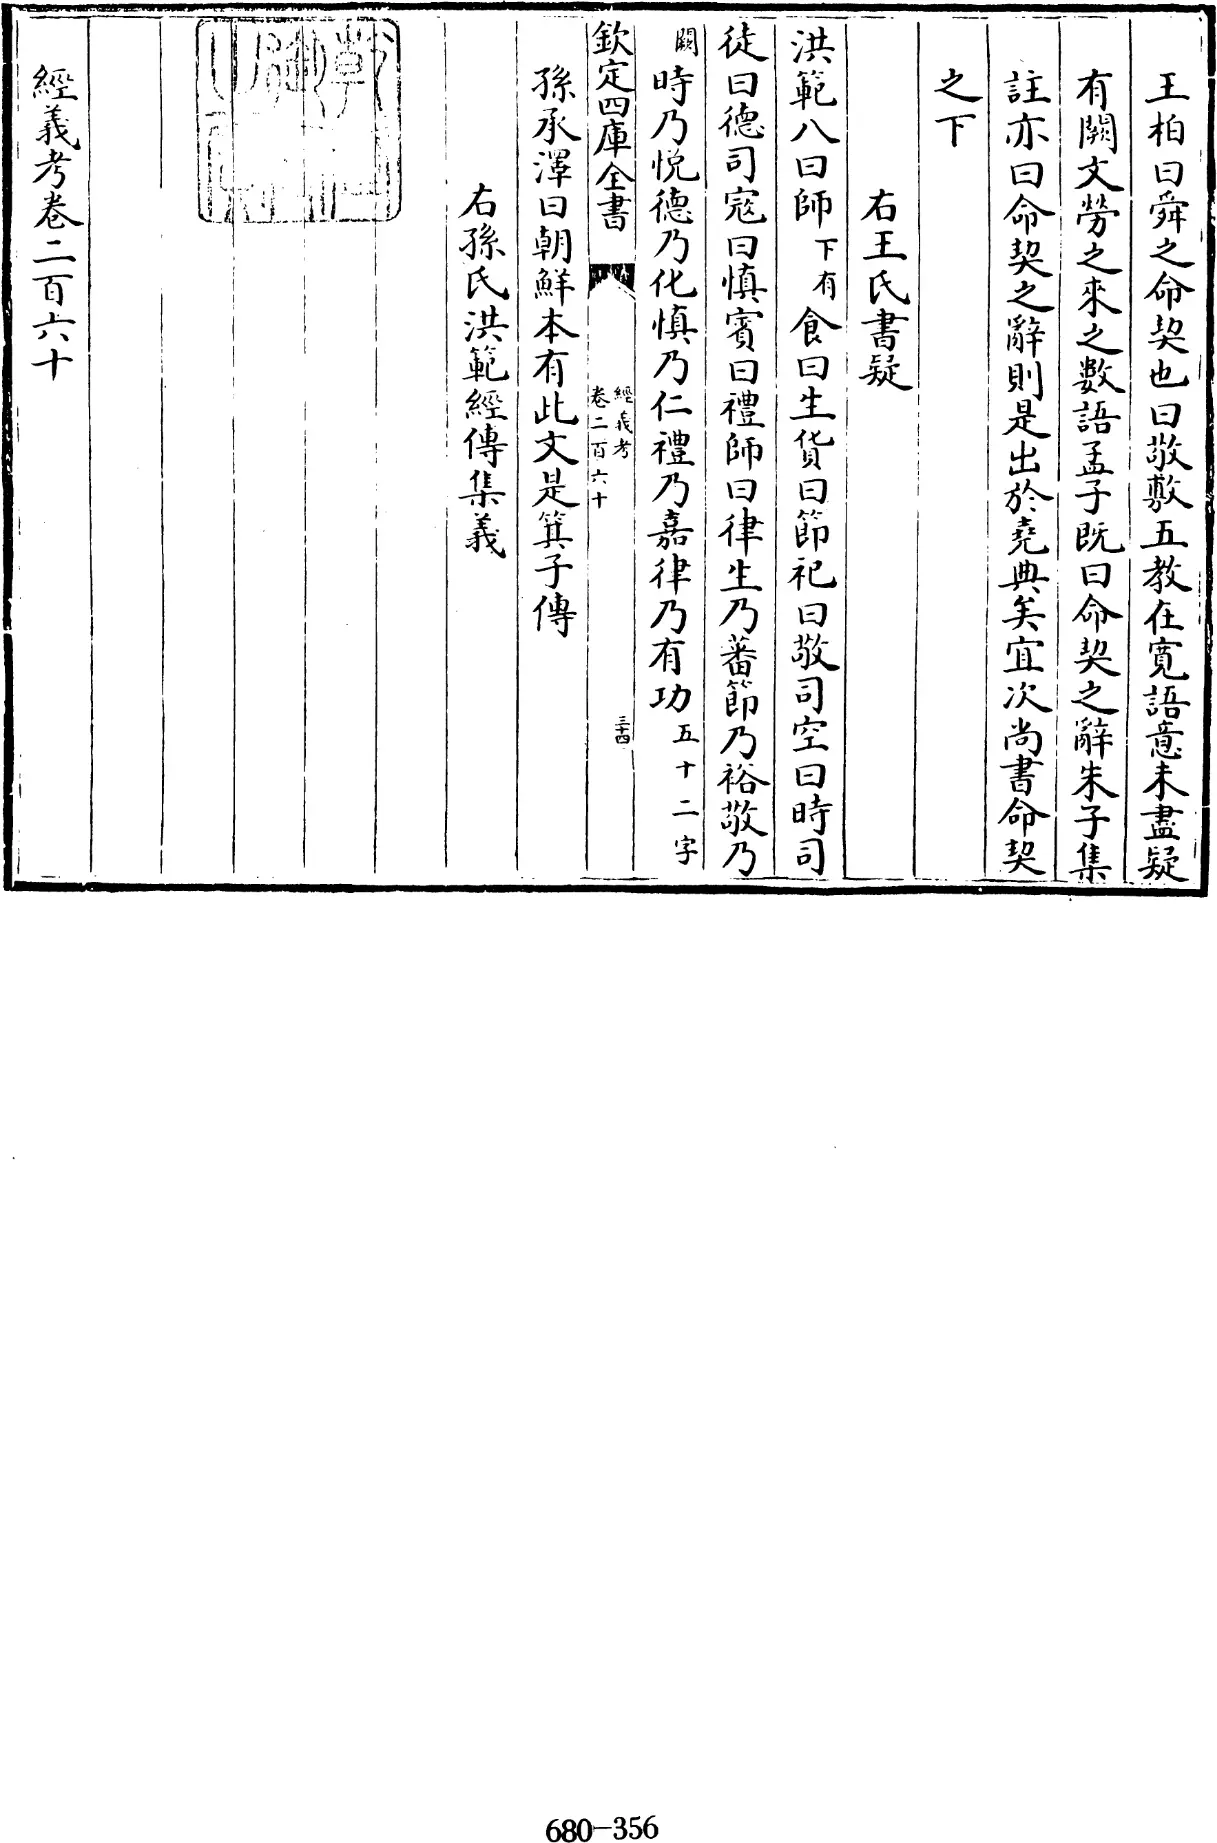 王柏曰舜之命契也曰敬敷五教在寛語意未盡疑
有闕文勞之來之數語孟子既曰命契之辭朱子集
註亦曰命契之辭則是出於堯典矣宜次尚書命契
之下
右王氏書疑
洪範八曰師下有食曰生貨曰節祀曰敬司空曰時司
徒曰德司寇曰慎賓曰禮師曰律生乃蕃節乃裕敬乃
闕時乃悦德乃化慎乃仁禮乃嘉律乃有功五十二字
欽定四庫全書
經義考
卷二百六十
三十四
孫承澤曰朝鮮本有此文是箕子傳
右孫氏洪範經傳集義
經義考卷二百六十
680-356